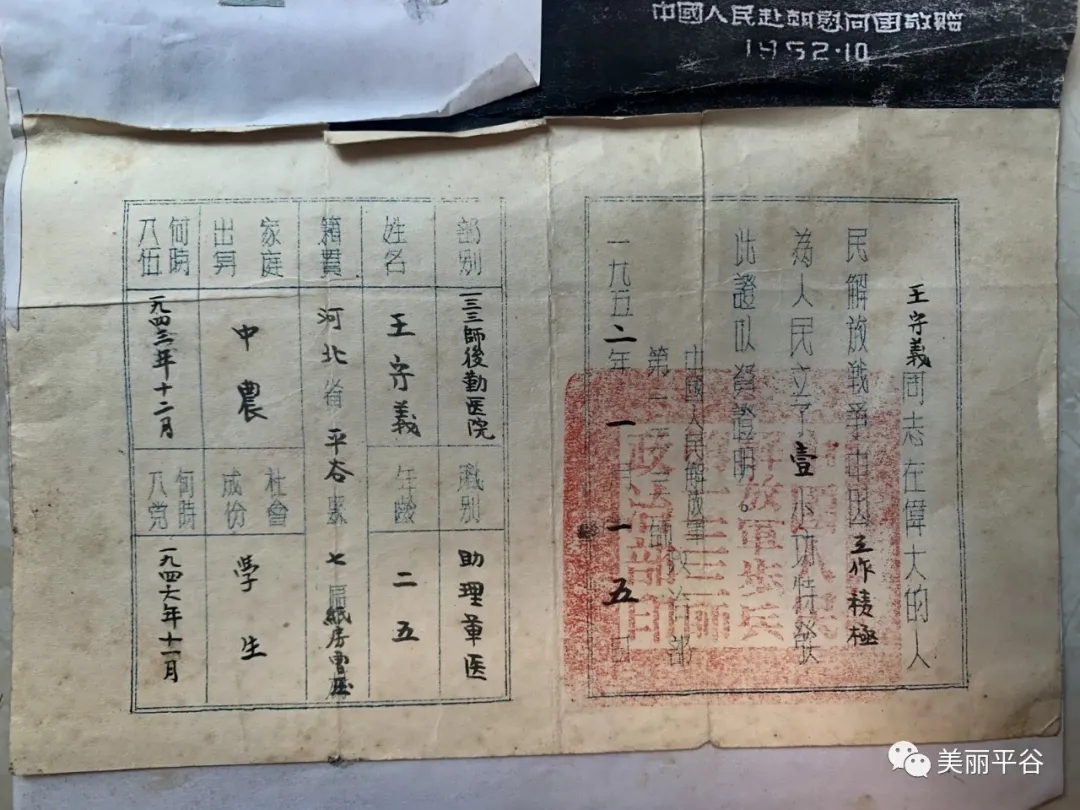 中國人民赴朝慰问团敬贈
1952·10
王守義同志在偉大的人
民解放戰爭中因工作積極
為人民立了壹小功特發
此證以資證明。
中國人民解放軍
第一三三師政治部
一九五二年一月一五日
中國人民
解放軍步兵
第一三三師
政治部印
部别 一三三師後勤医院 職别 助理軍医
姓名 王守義 年齡 二五
籍貫 河北省平谷縣七區紙房
家庭出身 中農 社會成份 学生
何時入伍 一九四三年十二月 何時入党 一九四六年十一月
美丽平谷